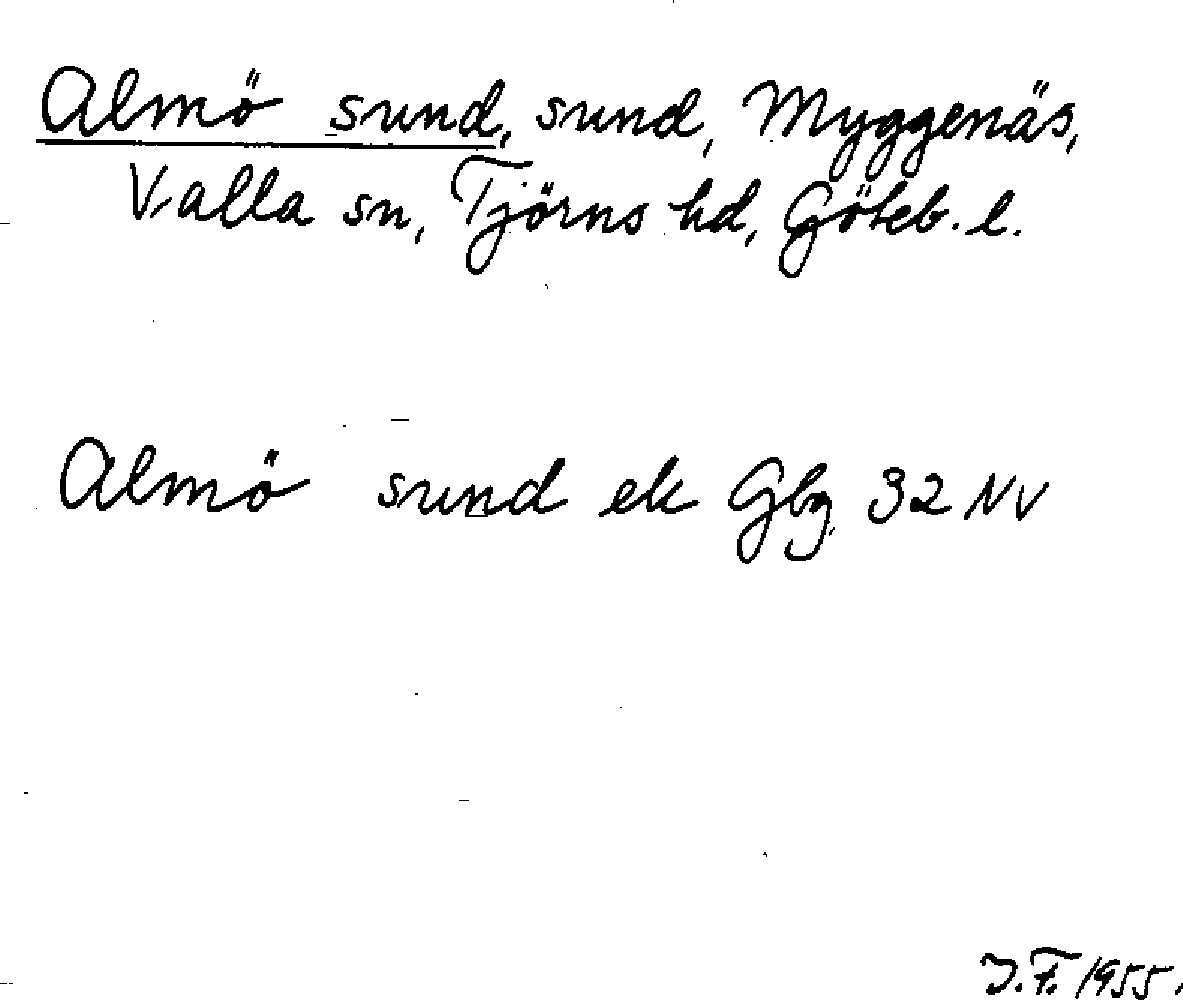 Almö sund, sund, Myggenäs,
Valla sn, Tjörns hd, Göteb. l.
Almö sund ek Gbg 32 NV
J.F. 1955.